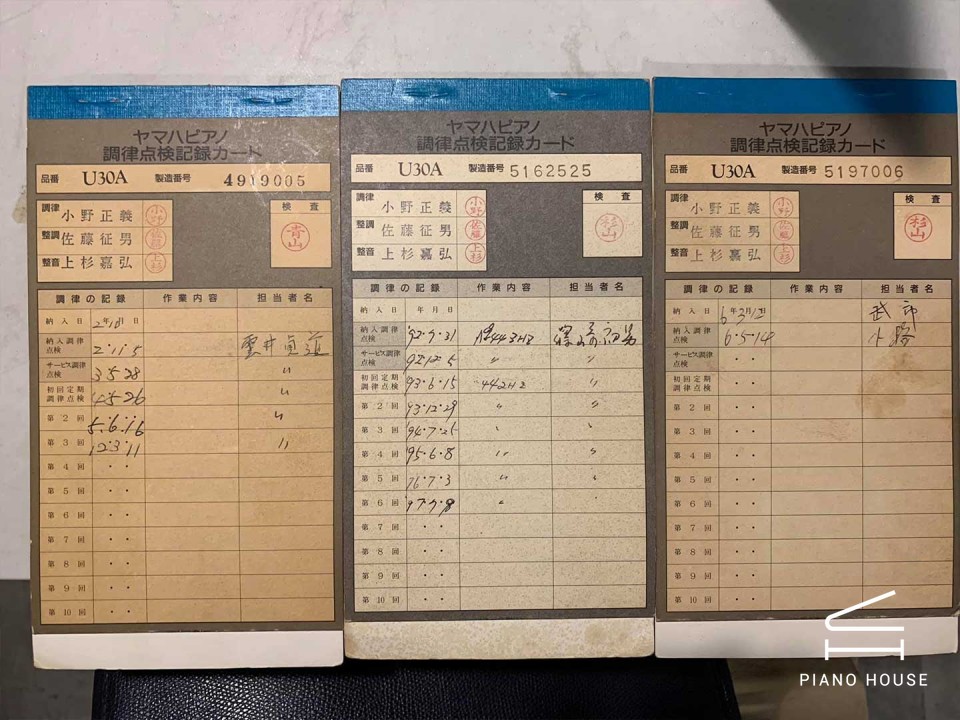 ヤマハピアノ
調律点検記録カード
品番 U30A 製造番号 4919005
調律 小野正義 小野
整調 佐藤征男 佐藤
整音 上杉嘉弘 上杉
検査
青山
調律の記録 作業内容 担当者名
納入日 2年10月 日
納入調律点検 2・11・5
サービス調律点検 3・5・28 〃
初回定期調律点検 4・5・26 〃
第2回 5・6・16 〃
第3回 12・3・11 〃
第4回 ・・
第5回 ・・
第6回 ・・
第7回 ・・
第8回 ・・
第9回 ・・
第10回 ・・
ヤマハピアノ
調律点検記録カード
品番 U30A 製造番号 5162525
調律 小野正義 小野
整調 佐藤征男 佐藤
整音 上杉嘉弘 上杉
検査
杉山
調律の記録 作業内容 担当者名
納入日 年月日
納入調律点検 '92・9・31 443HZ
サービス調律点検 '92・12・5 〃 〃
初回定期調律点検 '93・6・15 442HZ 〃
第2回 '93・12・29 〃 〃
第3回 '94・7・25 〃 〃
第4回 '95・6・8 〃 〃
第5回 '96・7・3 〃 〃
第6回 '97・7・8 〃
第7回 ・・
第8回 ・・
第9回 ・・
第10回 ・・
ヤマハピアノ
調律点検記録カード
品番 U30A 製造番号 5197006
調律 小野正義 小野
整調 佐藤征男 佐藤
整音 上杉嘉弘 上杉
検査
杉山
調律の記録 作業内容 担当者名
納入日 6年3月 日 武市
納入調律点検 6・5・14 小路
サービス調律点検 ・・
初回定期調律点検 ・・
第2回 ・・
第3回 ・・
第4回 ・・
第5回 ・・
第6回 ・・
第7回 ・・
第8回 ・・
第9回 ・・
第10回 ・・
PIANO HOUSE